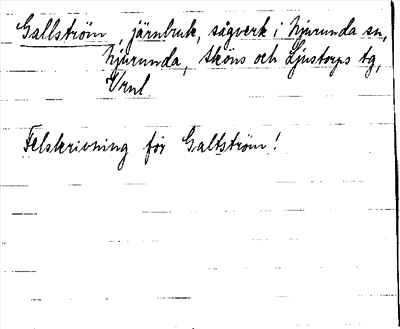 Gallström, järnbruk, sågverk i Njurunda sn,
Njurunda, Sköns och Ljustorps tg,
Vrnl
Felskrivning för Galtström!